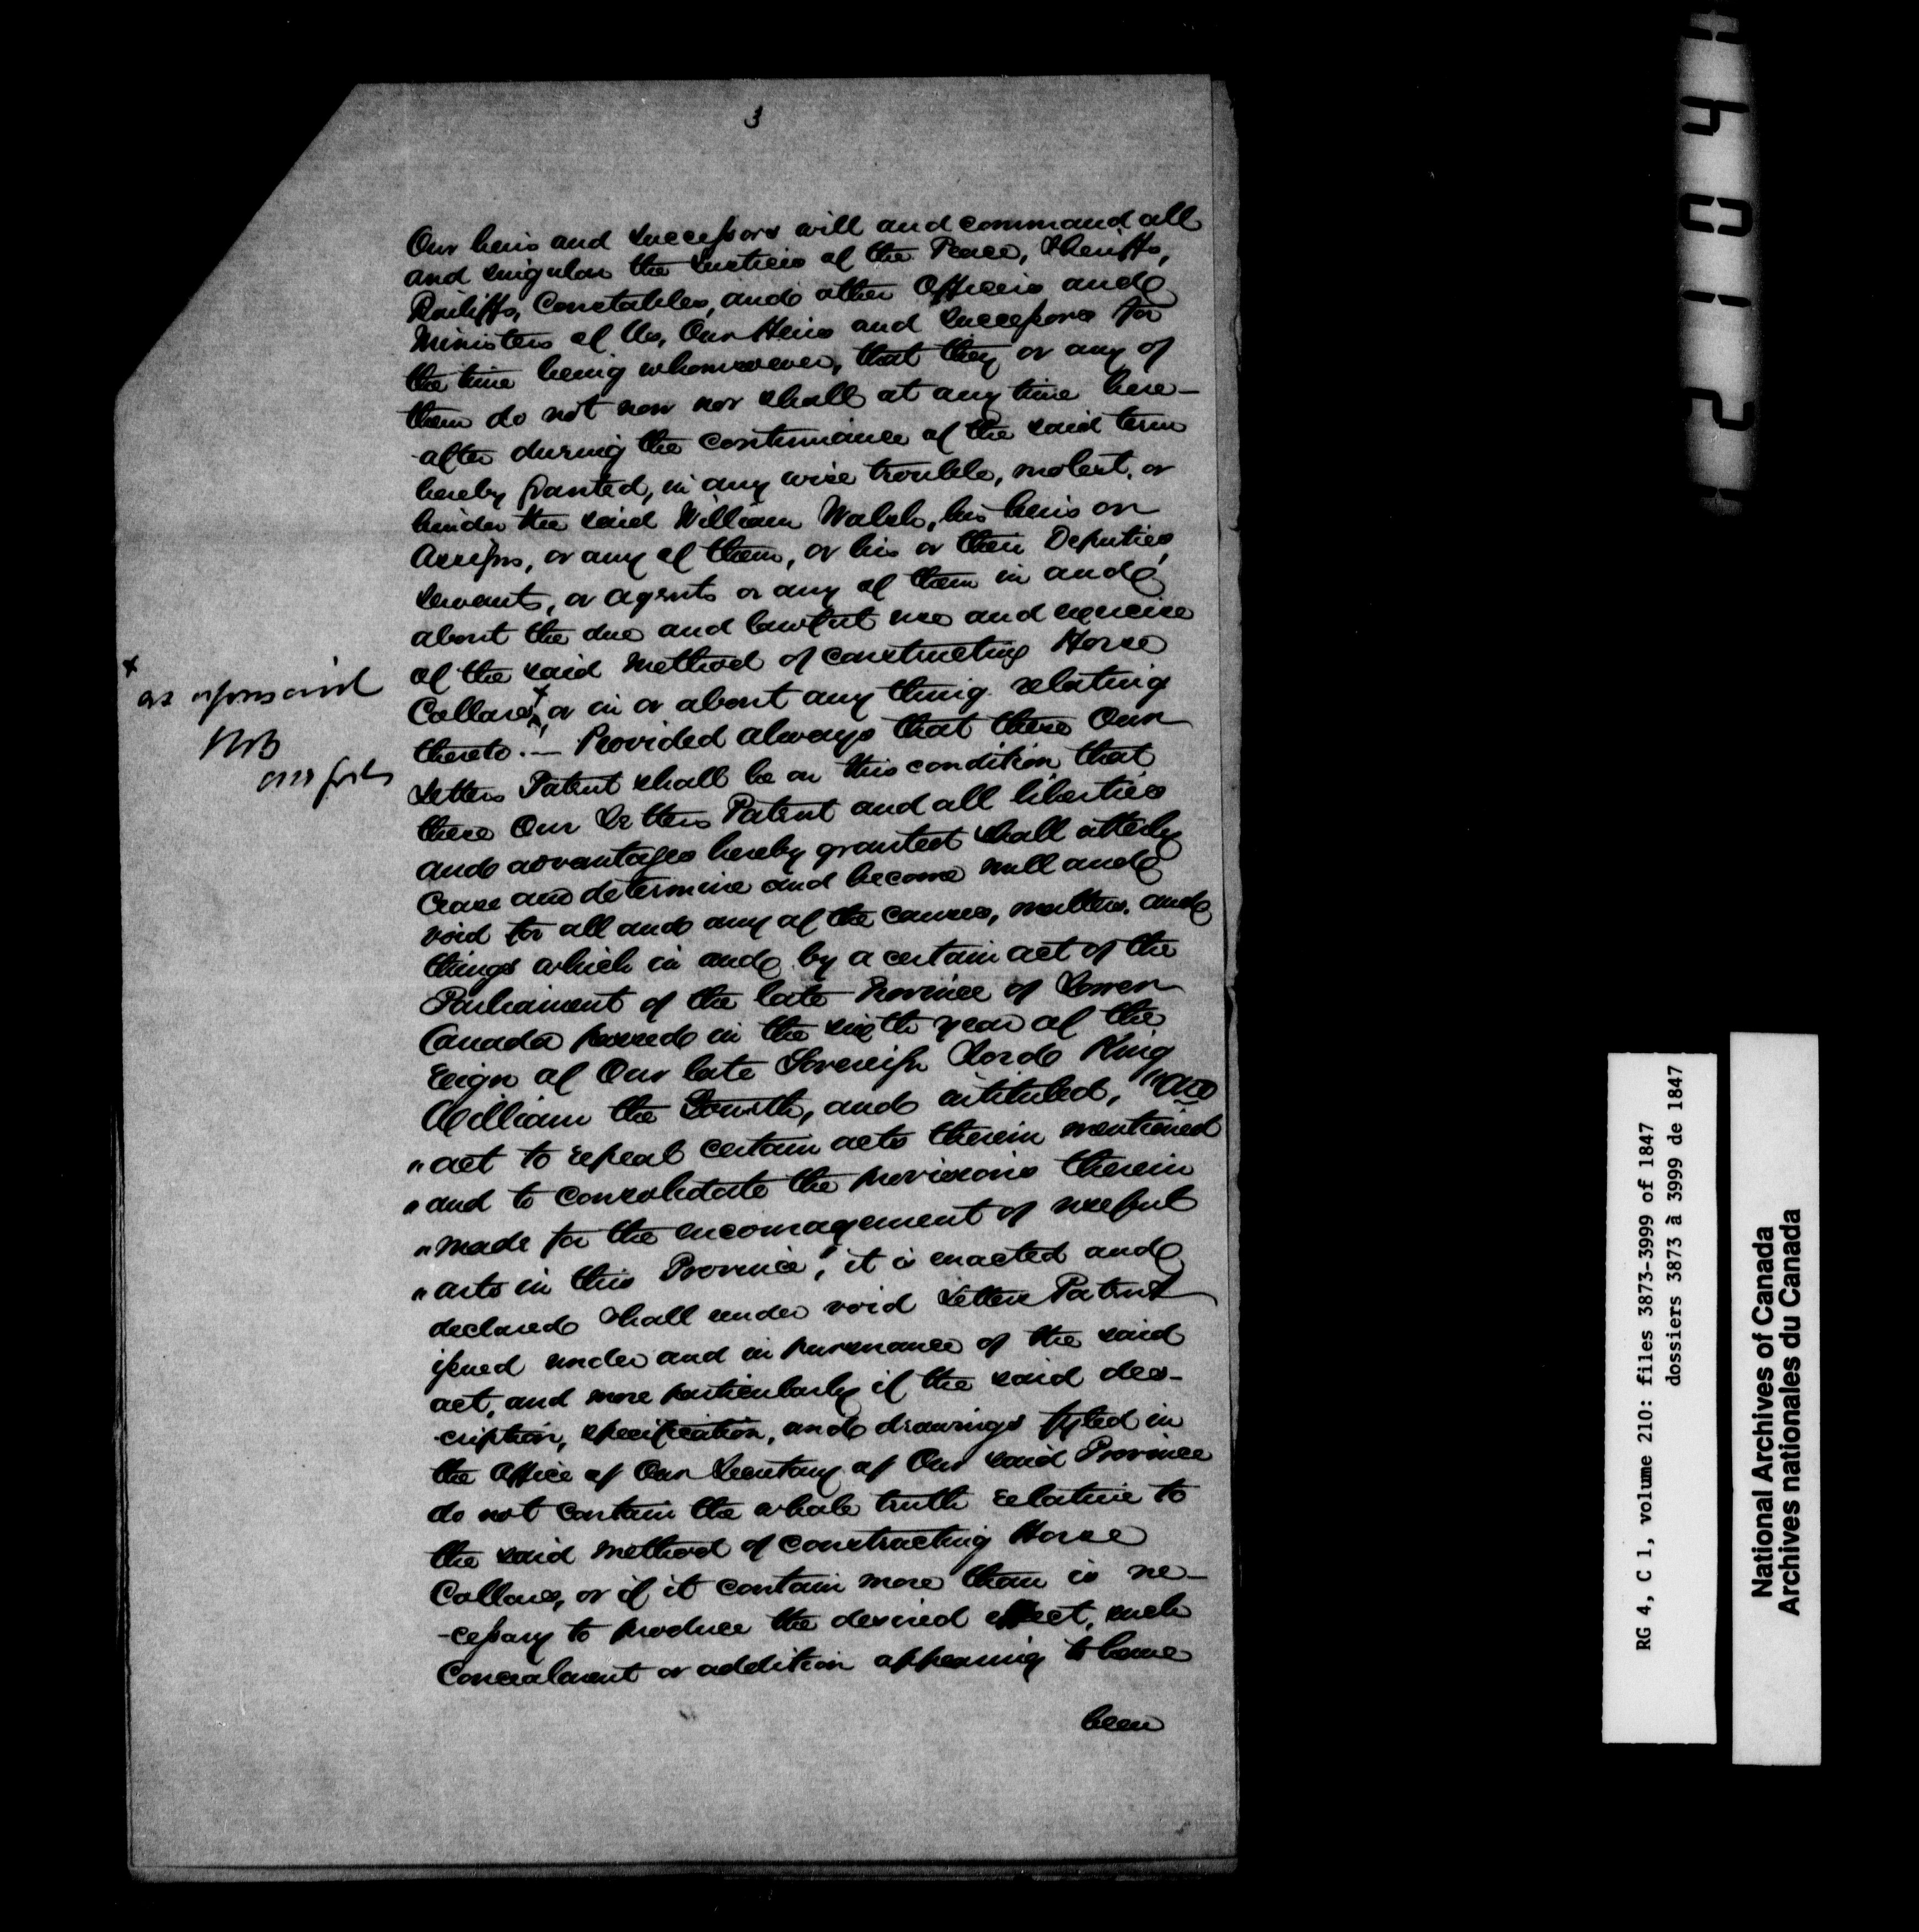 3
Our heirs and Successors will and command all
and singular the Justices of the Peace, Sheriffs,
Bailiffs, Constables, and other Officers and
Ministers of Us, Our Heirs and Successors for
the time being whomsoever, that they or any of
them do not now nor shall at any time here-
-after during the continuance of the said term
hereby granted, in any wise trouble, molest, or
hinder the said William Walsh, his heirs or
Assigns, or any of them, or his or their Deputies,
servants, or agents or any of them in and
about the due and lawful use and exercise
of the said method of constructing Horse
Collars, or in or about any thing relating
x
as aforesaid
thereto. — Provided always that these Our
Letters Patent shall be on this condition that
these Our Letters Patent and all liberties
and advantages hereby granted shall utterly
cease and determine and become null and
void for all and any of the causes, matters, and
things which in and by a certain act of the
Parliament of the late Province of Lower
Canada passed in the sixth year of the
reign of Our late Sovereign Lord King
William the Fourth, and intituled, "An
"act to repeal certain acts therein mentioned
"and to consolidate the provisions therein
"made for the encouragement of useful
"arts in this Province", it is enacted and
declared shall render void Letters Patent
issued under and in pursuance of the said
act, and more particularly if the said des-
-cription, specification, and drawings fyled in
the Office of Our Secretary of Our said Province
do not contain the whole truth relative to
the said method of constructing Horse
Collars, or if it contain more than is ne-
-cessary to produce the desired effect, such
Concealment or addition appearing to have
been
4012
RG 4, C 1, volume 210: files 3873-3999 of 1847
dossiers 3873 à 3999 de 1847
National Archives of Canada
Archives nationales du Canada